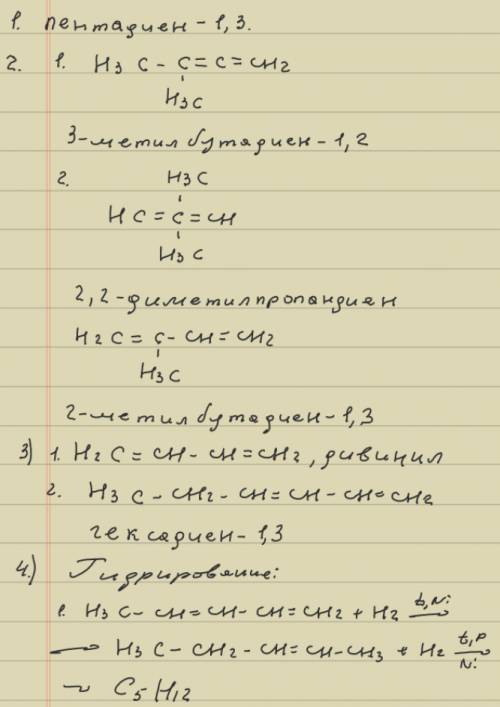 1. пентадиен - 1,3.
2. 1. H3 C - C = C = CH2
H3C
3-метилбутадиен - 1,2
2. H3C
H C = C = CH
H3C
2,2-диметилпропандиен
H2 C = C - CH = CH2
H3C
2-метилбутадиен - 1,3
3) 1. H2 C = CH - CH = CH2, дивинил
2. H3 C - CH2 - CH = CH - CH = CH2
гексадиен - 1,3
4.) Гидрирование:
1. H3 C - CH = CH - CH = CH2 + H2 t,Ni
H3 C - CH2 - CH = CH - CH3 + H2 t,P Ni
C5 H12